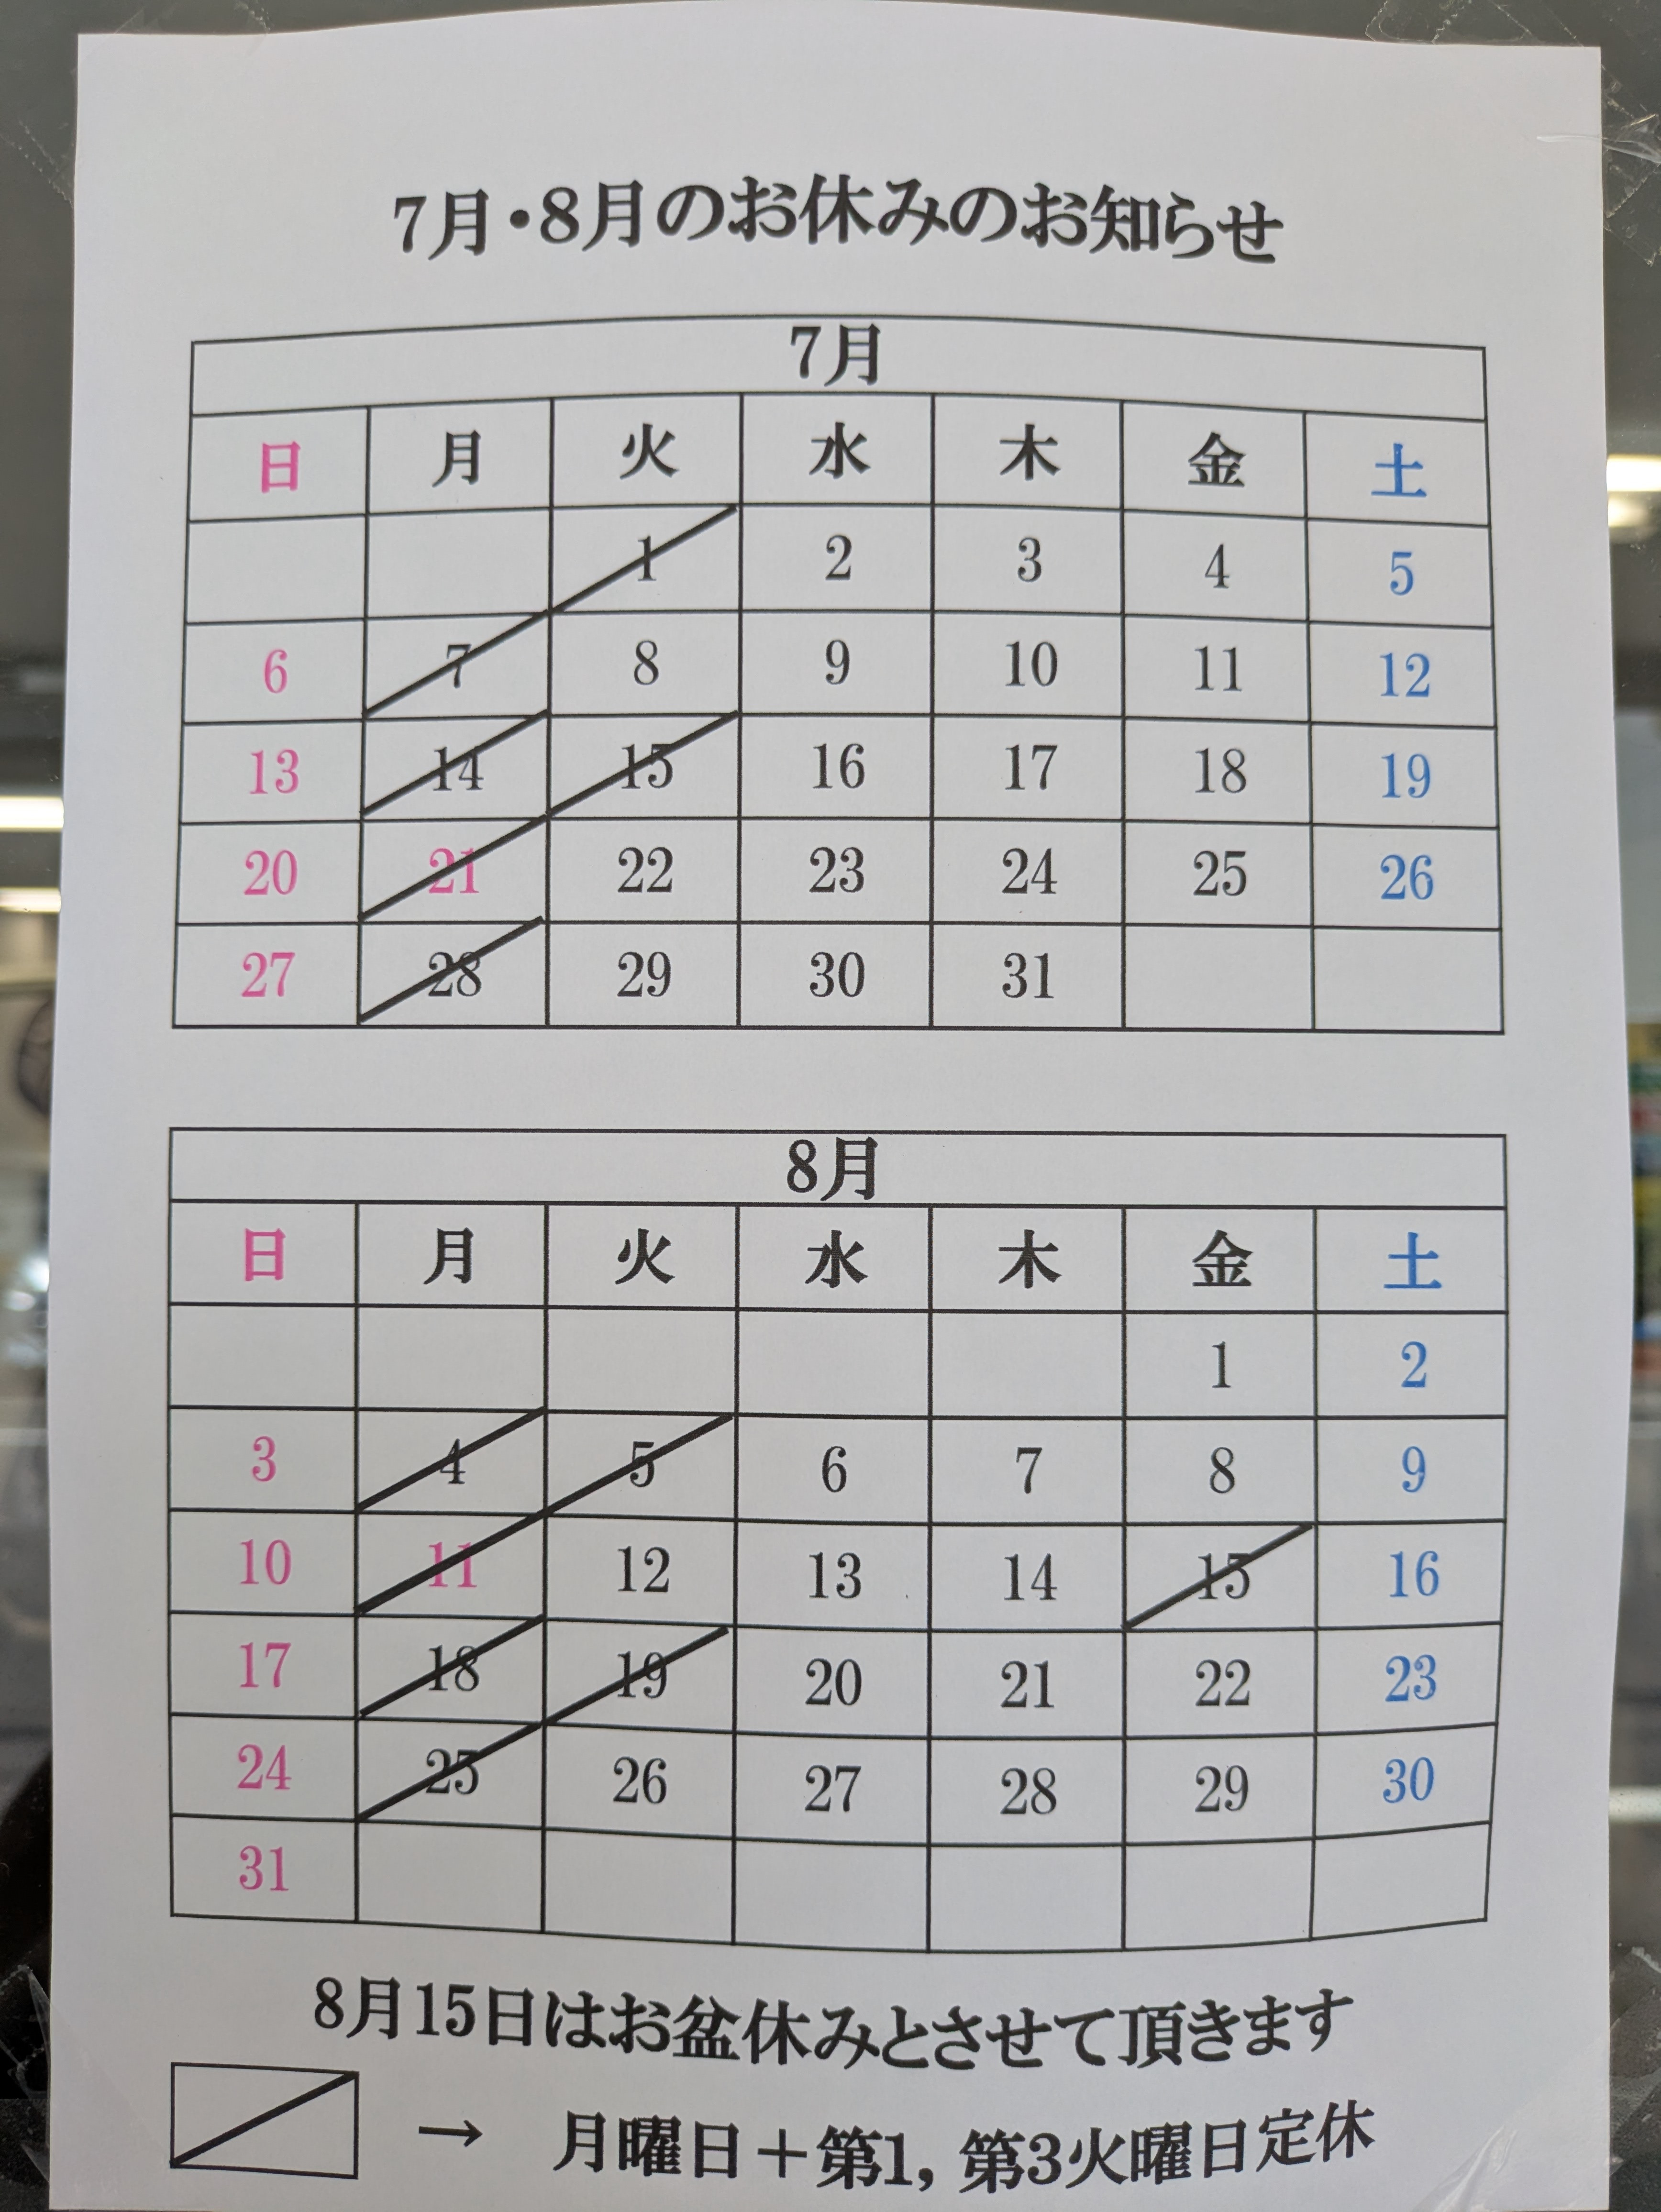 7月・8月のお休みのお知らせ
7月
日 月 火 水 木 金 土
1 2 3 4 5
6 7 8 9 10 11 12
13 14 15 16 17 18 19
20 21 22 23 24 25 26
27 28 29 30 31
8月
日 月 火 水 木 金 土
1 2
3 4 5 6 7 8 9
10 11 12 13 14 15 16
17 18 19 20 21 22 23
24 25 26 27 28 29 30
31
8月15日はお盆休みとさせて頂きます
→ 月曜日+第1, 第3火曜日定休